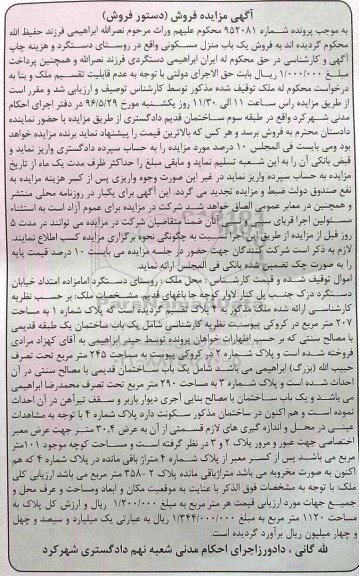 آگهی مزایده فروش (دستور فروش)
به موجب پرونده شماره ۹۵۲۰۸۱ محکوم علیهم وراث مرحوم نصرالله ابراهیمی فرزند حفیظ الله
محکوم گردیده اند به فروش یک باب منزل مسکونی واقع در روستای دستگرد و هزینه چاپ
آگهی و کارشناسی در حق محکوم له ایران ابراهیمی دستگردی فرزند نصرالله و همچنین پرداخت
مبلغ ۱/۰۰۰/۰۰۰ ریال بابت حق الاجرای دولتی با توجه به عدم قابلیت تقسیم ملک و بنا به
درخواست محکوم له ملک توقیف شده مذکور توسط کارشناس توصیف و ارزیابی شد و مقرر است
از طریق مزایده راس ساعت ۱۱ الی ۱۱/۳۰ روز یکشنبه مورخ ۹۶/۵/۲۹ در دفتر اجرای احکام
مدنی شهرکرد واقع در طبقه سوم ساختمان قدیم دادگستری از طریق مزایده با حضور نماینده
دادستان محترم به فروش برسد و هر کس که بالاترین قیمت را پیشنهاد نماید برنده مزایده خواهد
بود ومی بایست فی المجلس ۱۰ درصد مورد مزایده را به حساب سپرده دادگستری واریز نماید و
فیش بانکی آن را به این شعبه تسلیم نماید و مابقی مبلغ را حداکثر ظرف مدت یک ماه از تاریخ
مزایده به حساب سپرده واریز نماید در غیر این صورت وجوه واریزی پس از کسر هزینه مزایده به
نفع صندوق دولت ضبط و مزایده تجدید می گردد. این آگهی برای یکبار در روزنامه محلی منتشر
و همچنین در معابر عمومی الصاق خواهد شد شرکت در مزایده برای عموم آزاد است به استثناء
مسئولین اجرا قربای سببی آنان ضمنا متقاضیان شرکت در مزایده می توانند در مدت ۵
روز قبل از مزایده از طریق این اجرا نسبت به چگونگی نحوه برگزاری مزایده کسب اطلاع نمایند.
لازم به ذکر است شرکت کنندگان جهت حضور در جلسه مزایده می بایست ۱۰ درصد قیمت پایه
را به صورت چک تضمین شده بانکی فی المجلس ارائه نماید.
اموال توقیف شده و قیمت کارشناس: محل ملک: روستای دستگرد امامزاده امتداد خیابان
دستگرد دزک جنب پل کنار لاوار کوچه جا باغهای قدیم مشخصات ملک: بر حسب نظریه
کارشناسی ارائه شده ملک مذکور به ۴ پلاک تقسیم گردیده است که پلاک شماره ۱ به مساحت
۲۰۷ متر مربع در کروکی پیوست نظریه کارشناسی شامل یک باب ساختمان یک طبقه قدیمی
با مصالح سنتی که بر حسب اظهارات خواهان پرونده توسط حیدر ابراهیمی به آقای کهزاد مرادی
فروخته شده است و پلاک شماره ۲ در کروکی پیوست به مساحت ۲۴۵ متر مربع تحت تصرف
حبیب الله (بزرگ) ابراهیمی می باشد شامل یک باب ساختمان قدیمی با مصالح سنتی در آن
احداث شده است و پلاک شماره ۳ به مساحت ۲۹۰ متر مربع تحت تصرف محمدرضا ابراهیمی
می باشد و یک باب ساختمان با مصالح بنایی آجری دیوار باربر و سقف تیرآهن در آن احداث
نموده است و هم اکنون در ساختمان مذکور سکونت دارد پلاک شماره ۴ با توجه به مشاهدات
عینی در محل و اندازه گیری های لازم قسمتی از آن به عرض ۳۰.۴ متر جهت عرض معبر
اختصاصی جهت عبور و مرور پلاک ۲ و ۳ در نظر گرفته است و مساحت کوچه موجود ۱۰۱متر
مربع می باشد پس از کسر معبر از پلاک شماره ۴ متراژ باقی مانده در پلاک شماره ۴ که هم
اکنون به صورت مخروبه می باشد متراژباقی مانده پلاک ۲ ۳۵۸۰ متر مربع می باشد ارزیابی کلی
ملک: با توجه به مشخصات فوق الذکر با عنایت به موقعیت مکان و ابعاد ومساحت و عرف محل و
جمیع جهات مورد ارزیابی قیمت هر متر مربع به مبلغ ۱/۲۰۰/۰۰۰ ریال و ارزش کل پلاک به
مساحت ۱۱۲۰ متر مربع به مبلغ ۱/۳۴۴/۰۰۰/۰۰۰ ریال به عبارتی یک میلیارد و سیصد و چهل
و چهار میلیون ریال برآورد گردیده است.
لله گانی ، دادورزاجرای احکام مدنی شعبه نهم دادگستری شهرکرد